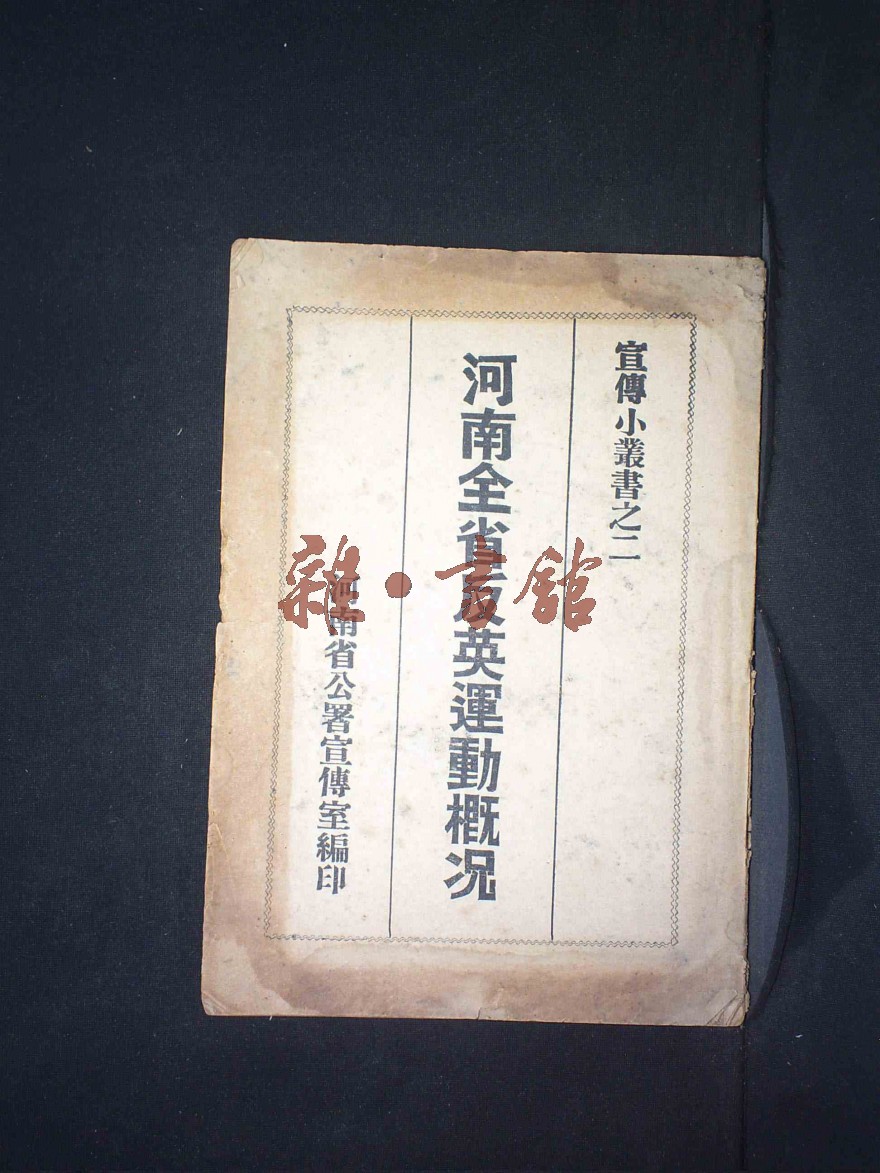 宣傳小叢書之二
河南全省反英運動概况
河南省公署宣傳室編印
雜·書館